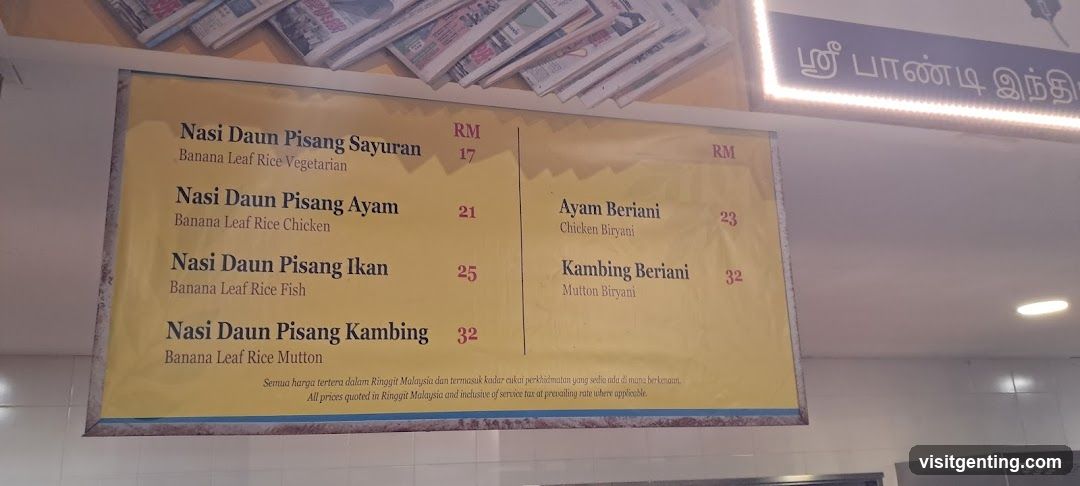 ஸ்ரீ பாண்டி இந்தி
RM
Nasi Daun Pisang Sayuran 17
Banana Leaf Rice Vegetarian
Nasi Daun Pisang Ayam 21
Banana Leaf Rice Chicken
Nasi Daun Pisang Ikan 25
Banana Leaf Rice Fish
Nasi Daun Pisang Kambing 32
Banana Leaf Rice Mutton
RM
Ayam Beriani 23
Chicken Biryani
Kambing Beriani 32
Mutton Biryani
Semua harga tertera dalam Ringgit Malaysia dan termasuk kadar cukai perkhidmatan yang sedia ada di mana berkenaan.
All prices quoted in Ringgit Malaysia and inclusive of service tax at prevailing rate where applicable.
visitgenting.com